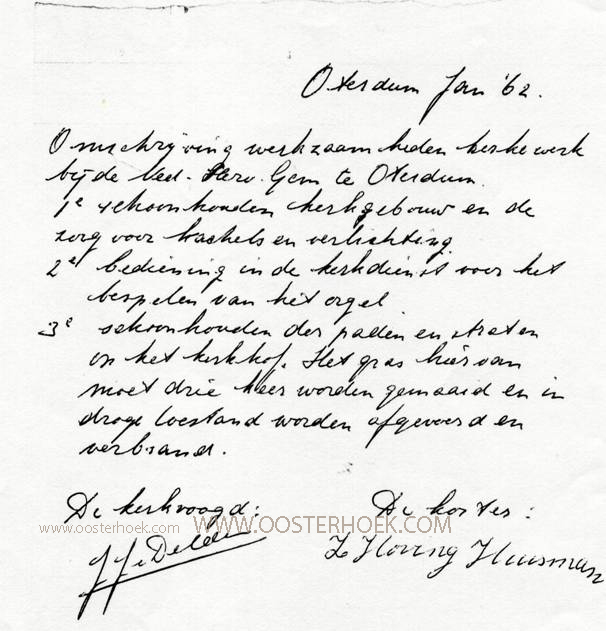 Oterdum Jan '62.
Omschrijving werkzaamheden kerkewerk
bij de Ned. Herv. Gem te Oterdum.
1e schoonhouden kerkgebouw en de
zorg voor kachels en verlichting
2e bediening in de kerkdienst voor het
bespelen van het orgel
3e schoonhouden der paden en straten
op het kerkhof. Het gras hiervan
moet drie keer worden gemaaid en in
droge toestand worden afgevoerd en
verbrand.
De kerkvoogd: De koster:
www.oosterhoek.com WWW.OOSTERHOEK.COM
Hoving Huisman